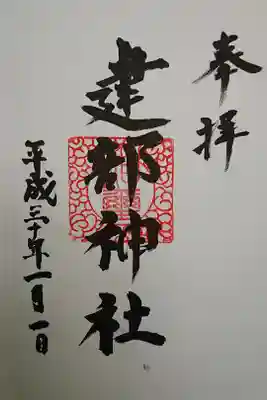 奉拝
建部神社
平成三十年一月一日